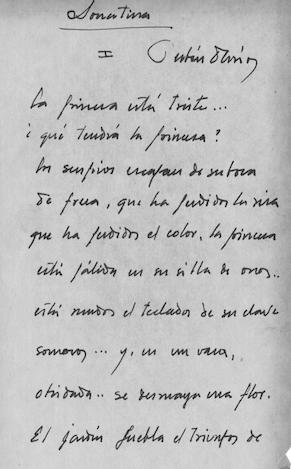 Sonatina
I
La princesa está triste...
¿qué tendrá la princesa?
los suspiros escapan de su boca
de fresa, que ha perdido la risa
que ha perdido el color. la princesa
está pálida en su silla de oro..
está mudo el teclado de su clave
sonoro... y, en un vaso,
olvidada.. se desmaya una flor.
El jardín puebla el triunfo de